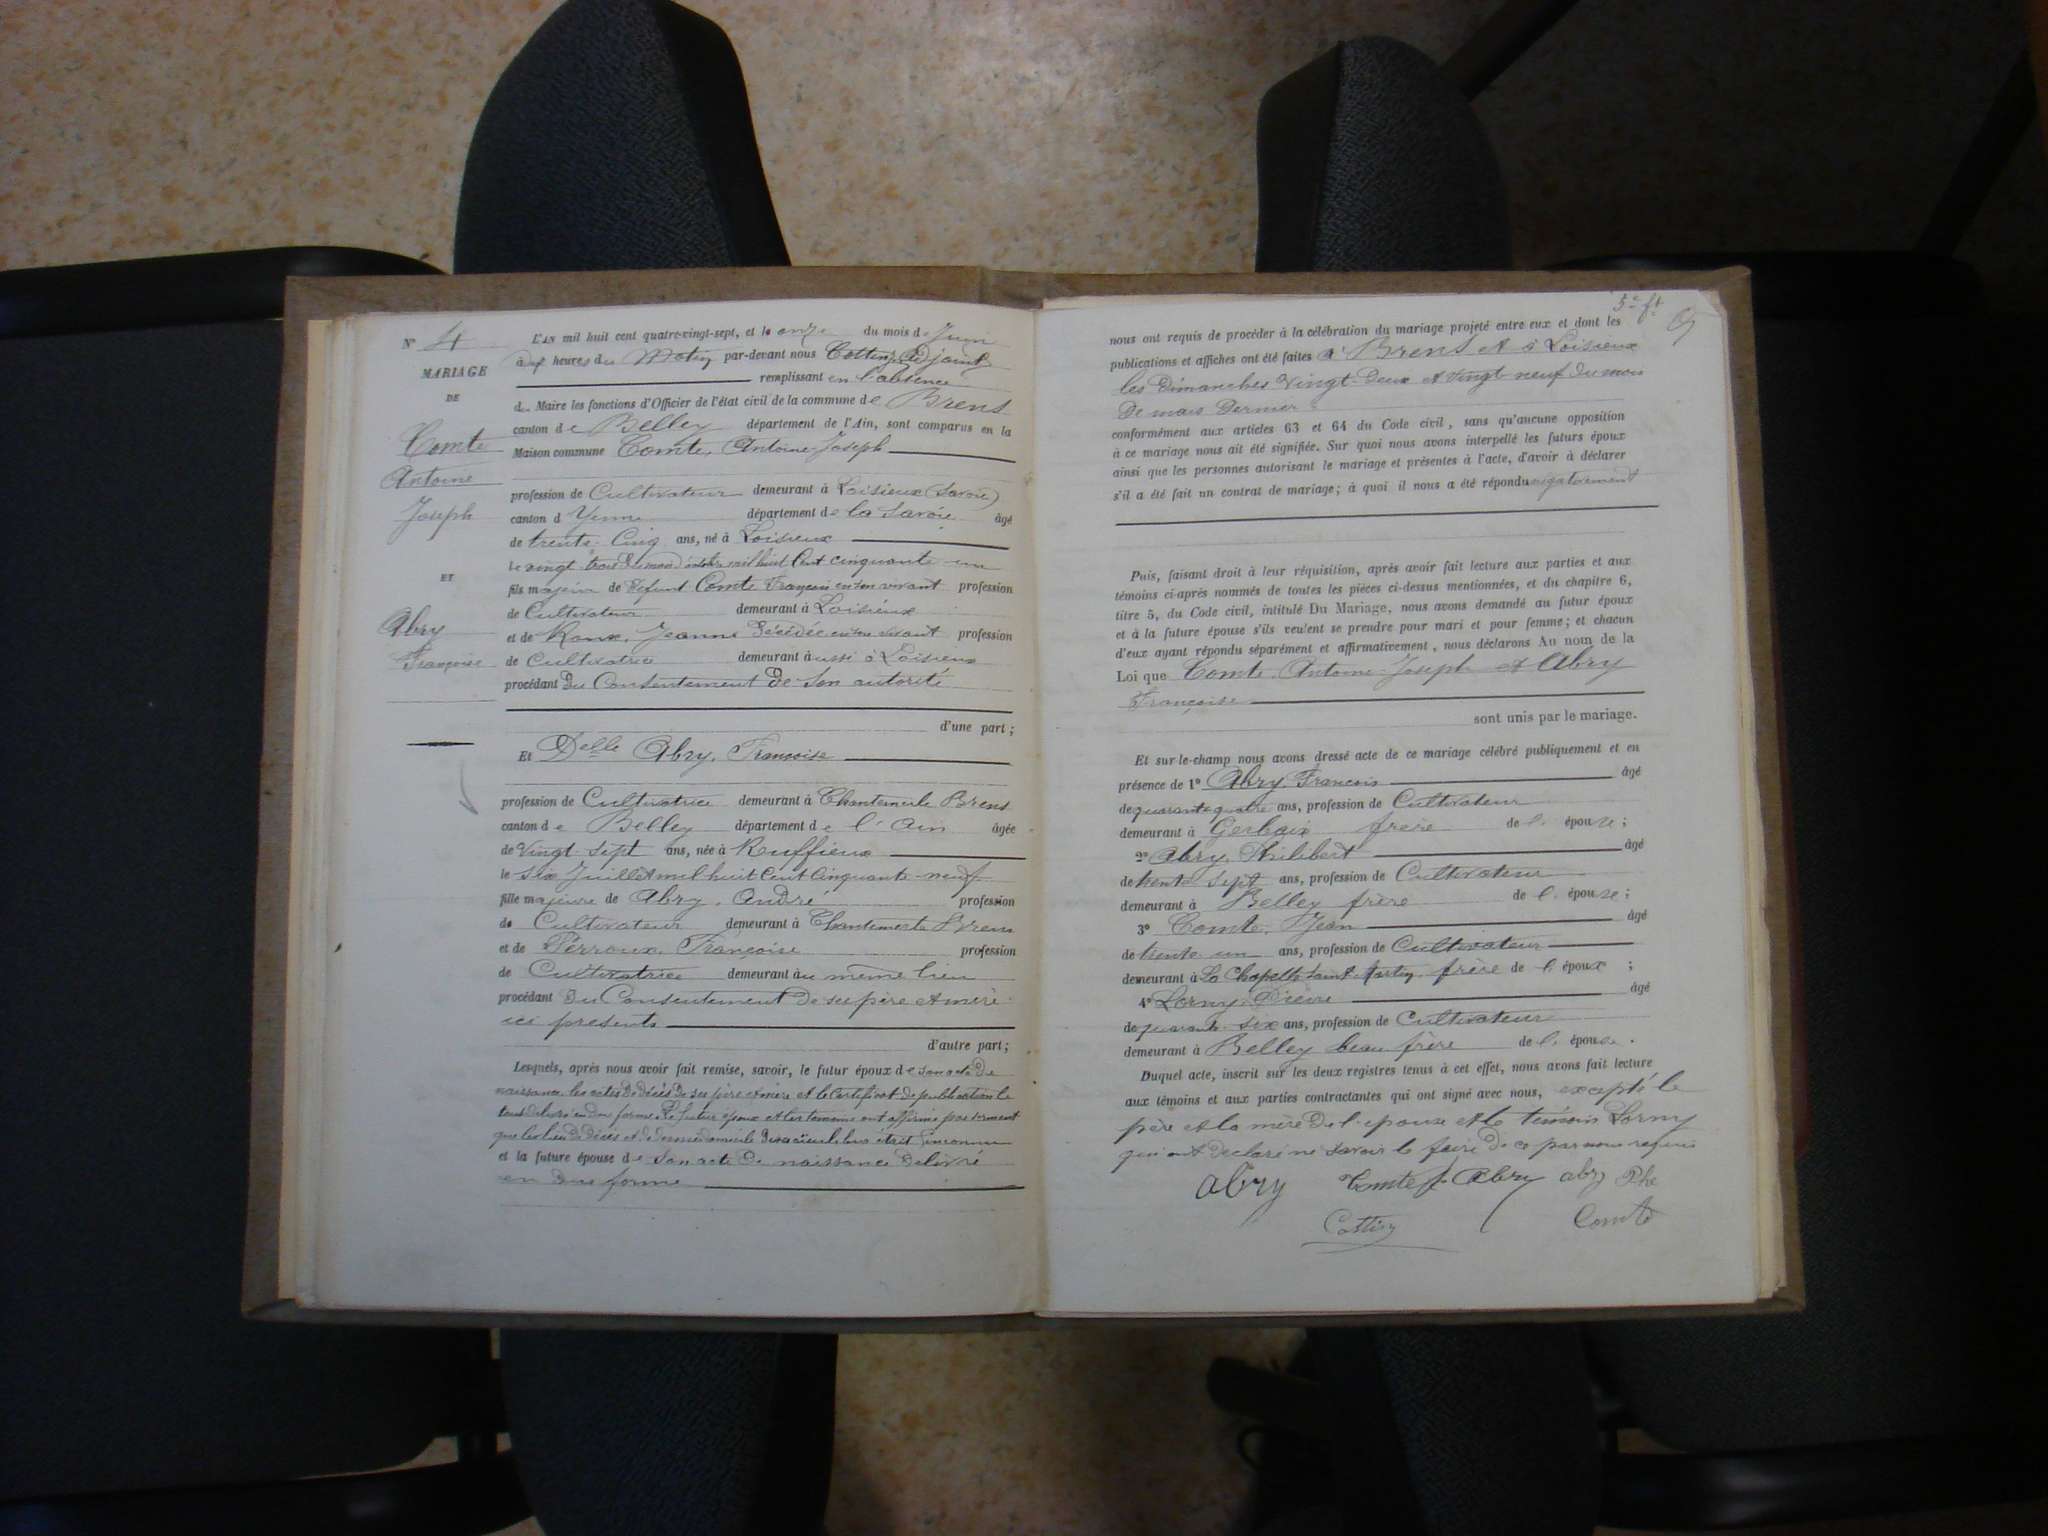 N° 4
MARIAGE
DE
Comte
Antoine
Joseph
ET
Abry
Françoise
L'AN mil huit cent quatre-vingt-sept, et le onze du mois de Juin
à dix heures du Matin par-devant nous Cottin, adjoint
remplissant en l'absence
du Maire les fonctions d'Officier de l'état civil de la commune de Brens
canton de Belley département de l'Ain, sont comparus en la
Maison commune Comte, Antoine-Joseph
profession de Cultivateur demeurant à Loisieux (Savoie)
canton d Yenne département de la Savoie âgé
de trente-Cinq ans, né à Loisieux
le vingt-trois du mois d'octobre mil huit Cent cinquante-un
fils majeur de Défunt Comte François en son vivant profession
de Cultivateur demeurant à Loisieux
et de Roux, Jeanne Décédée en son vivant profession
de Cultivatrice demeurant aussi à Loisieux
procédant Du Consentement De Son autorité
d'une part ;
Et Delle Abry, Françoise
profession de Cultivatrice demeurant à Chantemerle Brens
canton de Belley département de l'Ain âgée
de Vingt-Sept ans, née à Ruffieux
le Six Juillet mil huit Cent Cinquante-neuf
fille majeure de Abry, André profession
de Cultivateur demeurant à Chantemerle Brens
et de Perroux, Françoise profession
de Cultivatrice demeurant au même lieu
procédant Du Consentement De ses père et mère
ici présents
d'autre part ;
Lesquels, après nous avoir fait remise, savoir, le futur époux de son acte De
naissance les actes De Décès De ses père et mère et le Certificat De publication le
tout délivré en due forme Le futur époux et les témoins ont affirmé par serment
que les lieu De Décès et De Dernier domicile De ses aïeuls leur était inconnu
et la future épouse de Son acte De naissance Délivré
en due forme
5e ft
nous ont requis de procéder à la célébration du mariage projeté entre eux et dont les
publications et affiches ont été faites à Brens et à Loisieux
les Dimanches Vingt-Deux et Vingt-neuf du mois
De mai Dernier
conformément aux articles 63 et 64 du Code civil, sans qu'aucune opposition
à ce mariage nous ait été signifiée. Sur quoi nous avons interpellé les futurs époux
ainsi que les personnes autorisant le mariage et présentes à l'acte, d'avoir à déclarer
s'il a été fait un contrat de mariage ; à quoi il nous a été répondu négativement
Puis, faisant droit à leur réquisition, après avoir fait lecture aux parties et aux
témoins ci-après nommés de toutes les pièces ci-dessus mentionnées, et du chapitre 6,
titre 5, du Code civil, intitulé Du Mariage, nous avons demandé au futur époux
et à la future épouse s'ils veulent se prendre pour mari et pour femme ; et chacun
d'eux ayant répondu séparément et affirmativement, nous déclarons Au nom de la
Loi que Comte, Antoine-Joseph et Abry
Françoise
sont unis par le mariage.
Et sur-le-champ nous avons dressé acte de ce mariage célébré publiquement et en
présence de 1° Abry, François âgé
de quarante quatre ans, profession de Cultivateur
demeurant à Gerbaix frère de l' épouse ;
2° Abry, Philibert âgé
de trente Sept ans, profession de Cultivateur
demeurant à Belley frère de l' épouse ;
3° Comte, Jean âgé
de trente un ans, profession de Cultivateur
demeurant à La Chapelle Saint Martin frère de l' époux ;
4° Lorny, Pierre âgé
de quarante-six ans, profession de Cultivateur
demeurant à Belley beau frère de l' épouse.
Duquel acte, inscrit sur les deux registres tenus à cet effet, nous avons fait lecture
aux témoins et aux parties contractantes qui ont signé avec nous, excepté le
père et la mère De l'épouse et le témoin Lorny
qui ont déclaré ne savoir le faire de ce par nous requis
abry Comte J. Abry abry Phe
Cottin Comte